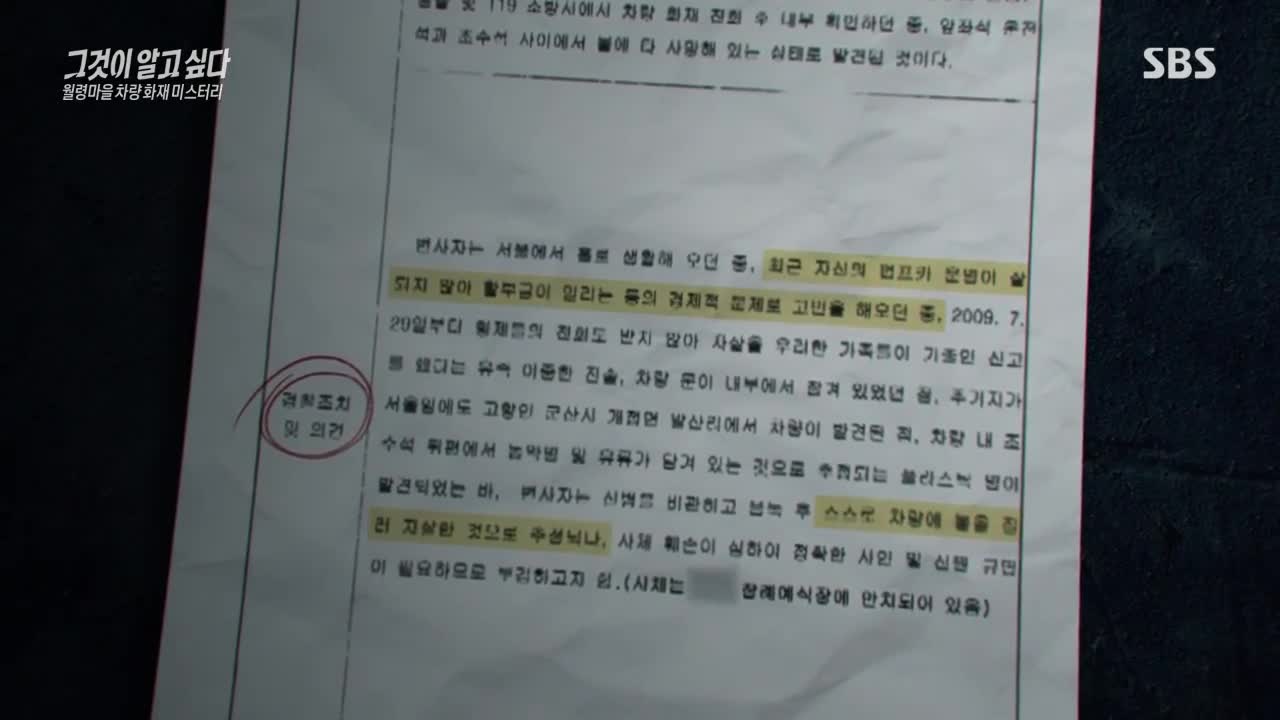 그것이 알고 싶다
월령마을 차량 화재 미스터리
SBS
및 119 소방서에서 차량 화재 진화 후 내부 확인하던 중, 앞좌석 운전
석과 조수석 사이에서 불에 타 사망해 있는 상태로 발견된 것이다.
변사자는 서울에서 홀로 생활해 오던 중, 최근 자신의 펌프카 운영이 잘
되지 않아 할부금이 밀리는 등의 경제적 문제로 고민을 해오던 중, 2009. 7.
29일부터 형제들의 전화도 받지 않아 자살을 우려한 가족들이 가출인 신고
를 했다는 유족 이종한 진술, 차량 문이 내부에서 잠겨 있었던 점, 주거지가
경찰조치
및 의견
서울임에도 고향인 군산시 개정면 발산리에서 차량이 발견된 점, 차량 내 조
수석 뒤편에서 농약병 및 유류가 담겨 있는 것으로 추정되는 플라스틱 병이
발견되었는 바, 변사자는 신병을 비관하고 음독 후 스스로 차량에 불을 질
러 자살한 것으로 추정되나, 사체 훼손이 심하여 정확한 사인 및 신원 규명
이 필요하므로 부검하고자 함.(사체는 장례예식장에 안치되어 있음)